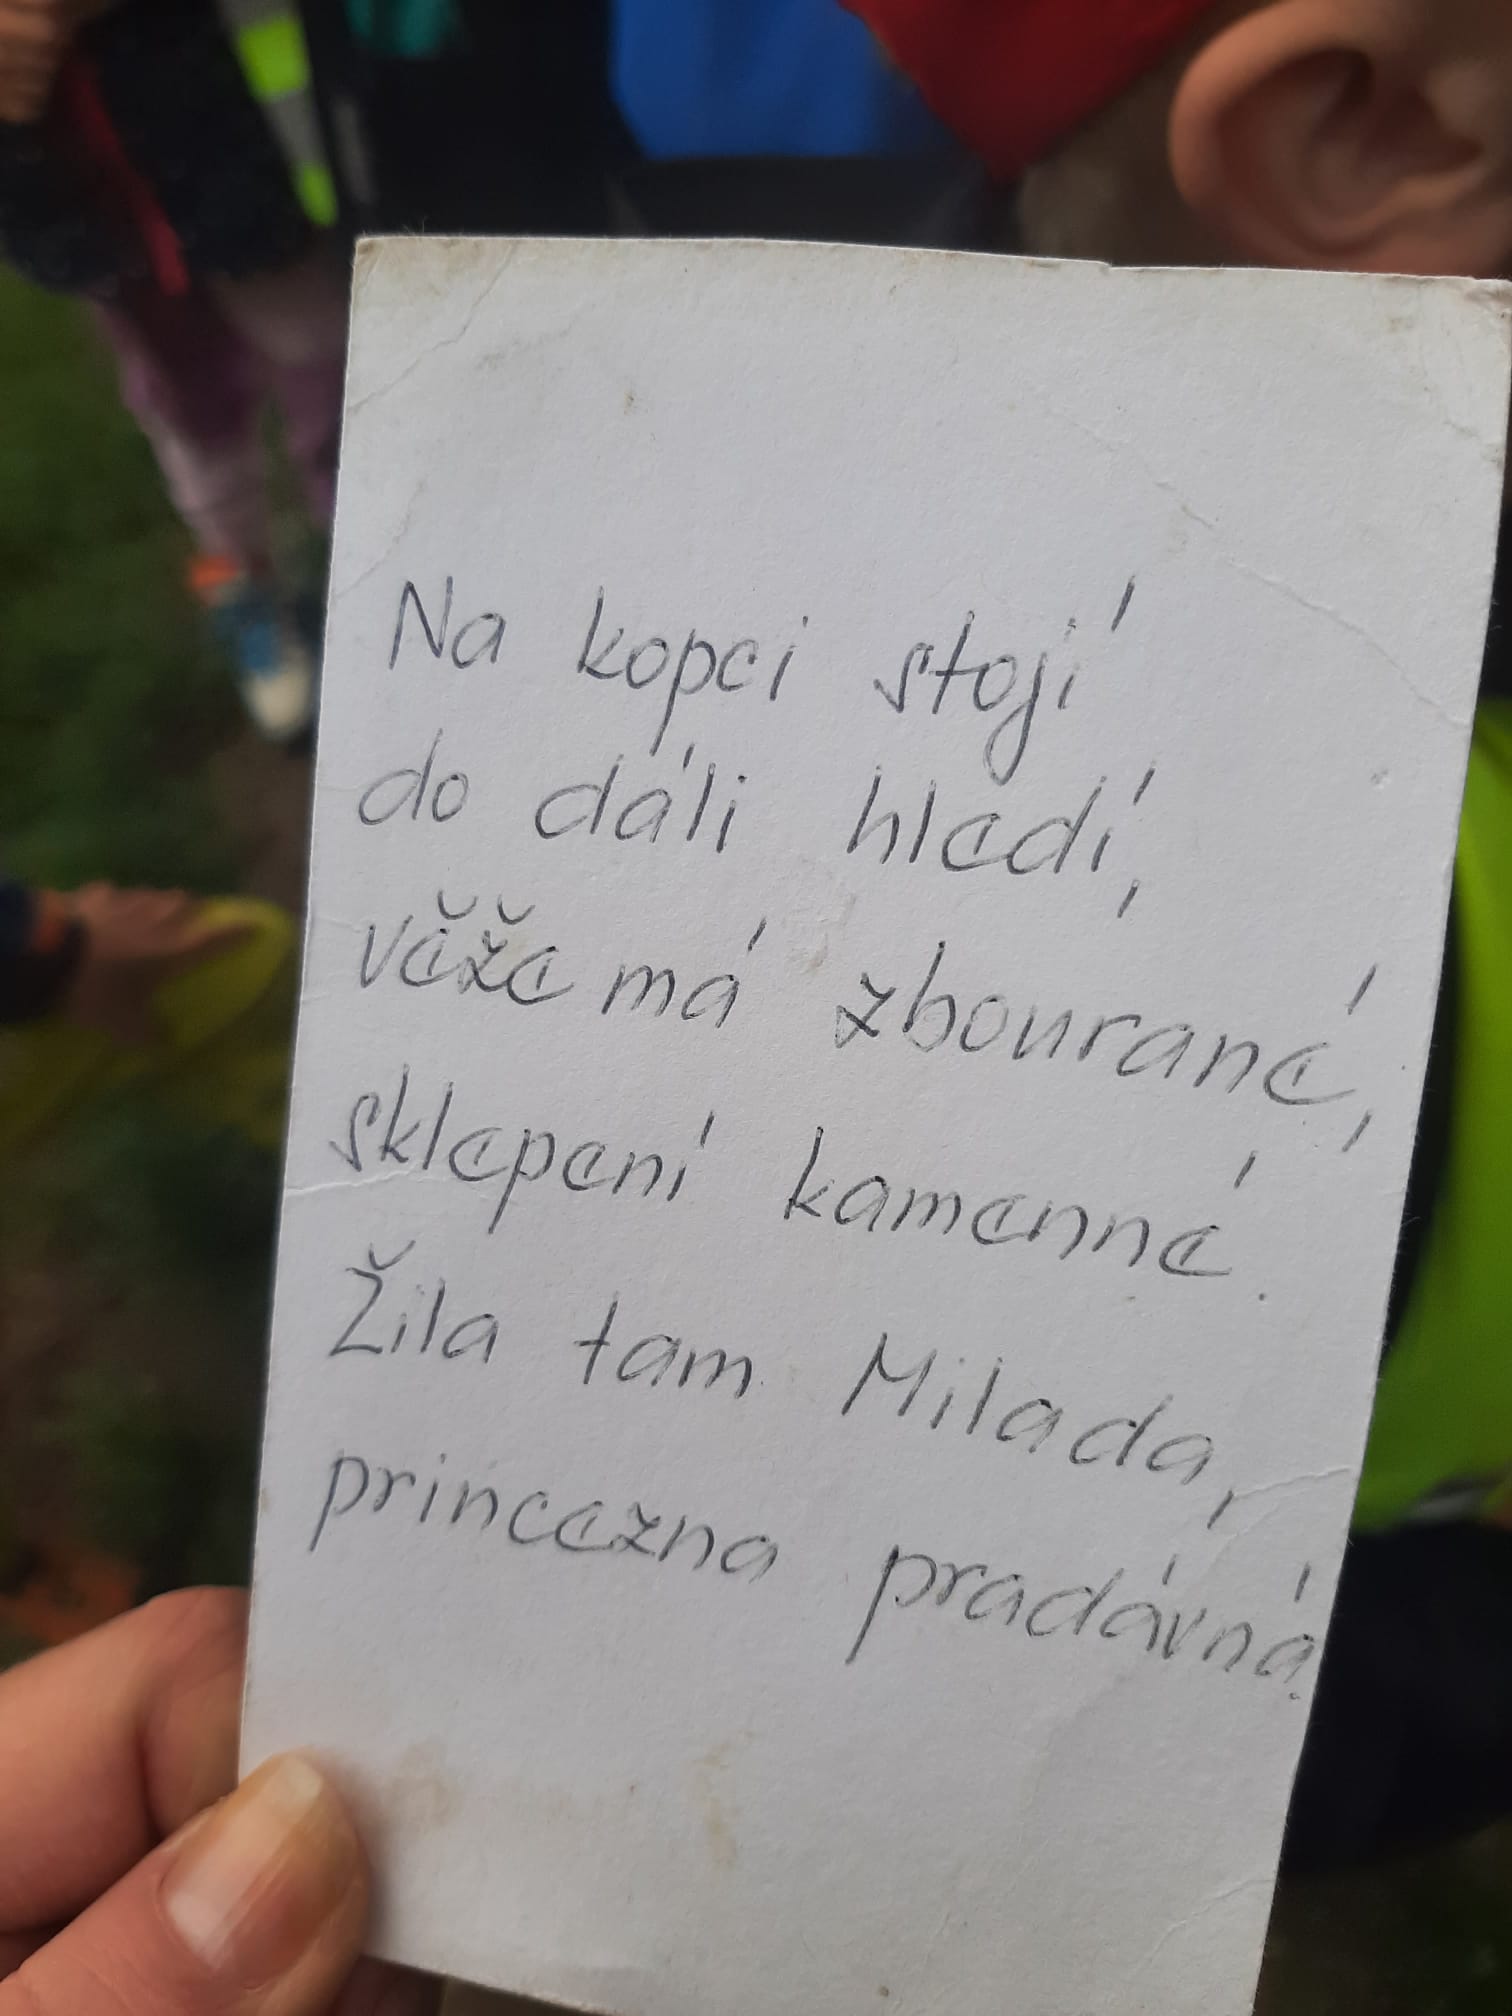 Na kopci stojí
do dáli hledí,
věže má zbourané,
sklepení kamenné.
Žila tam Milada,
princezna pradávná.